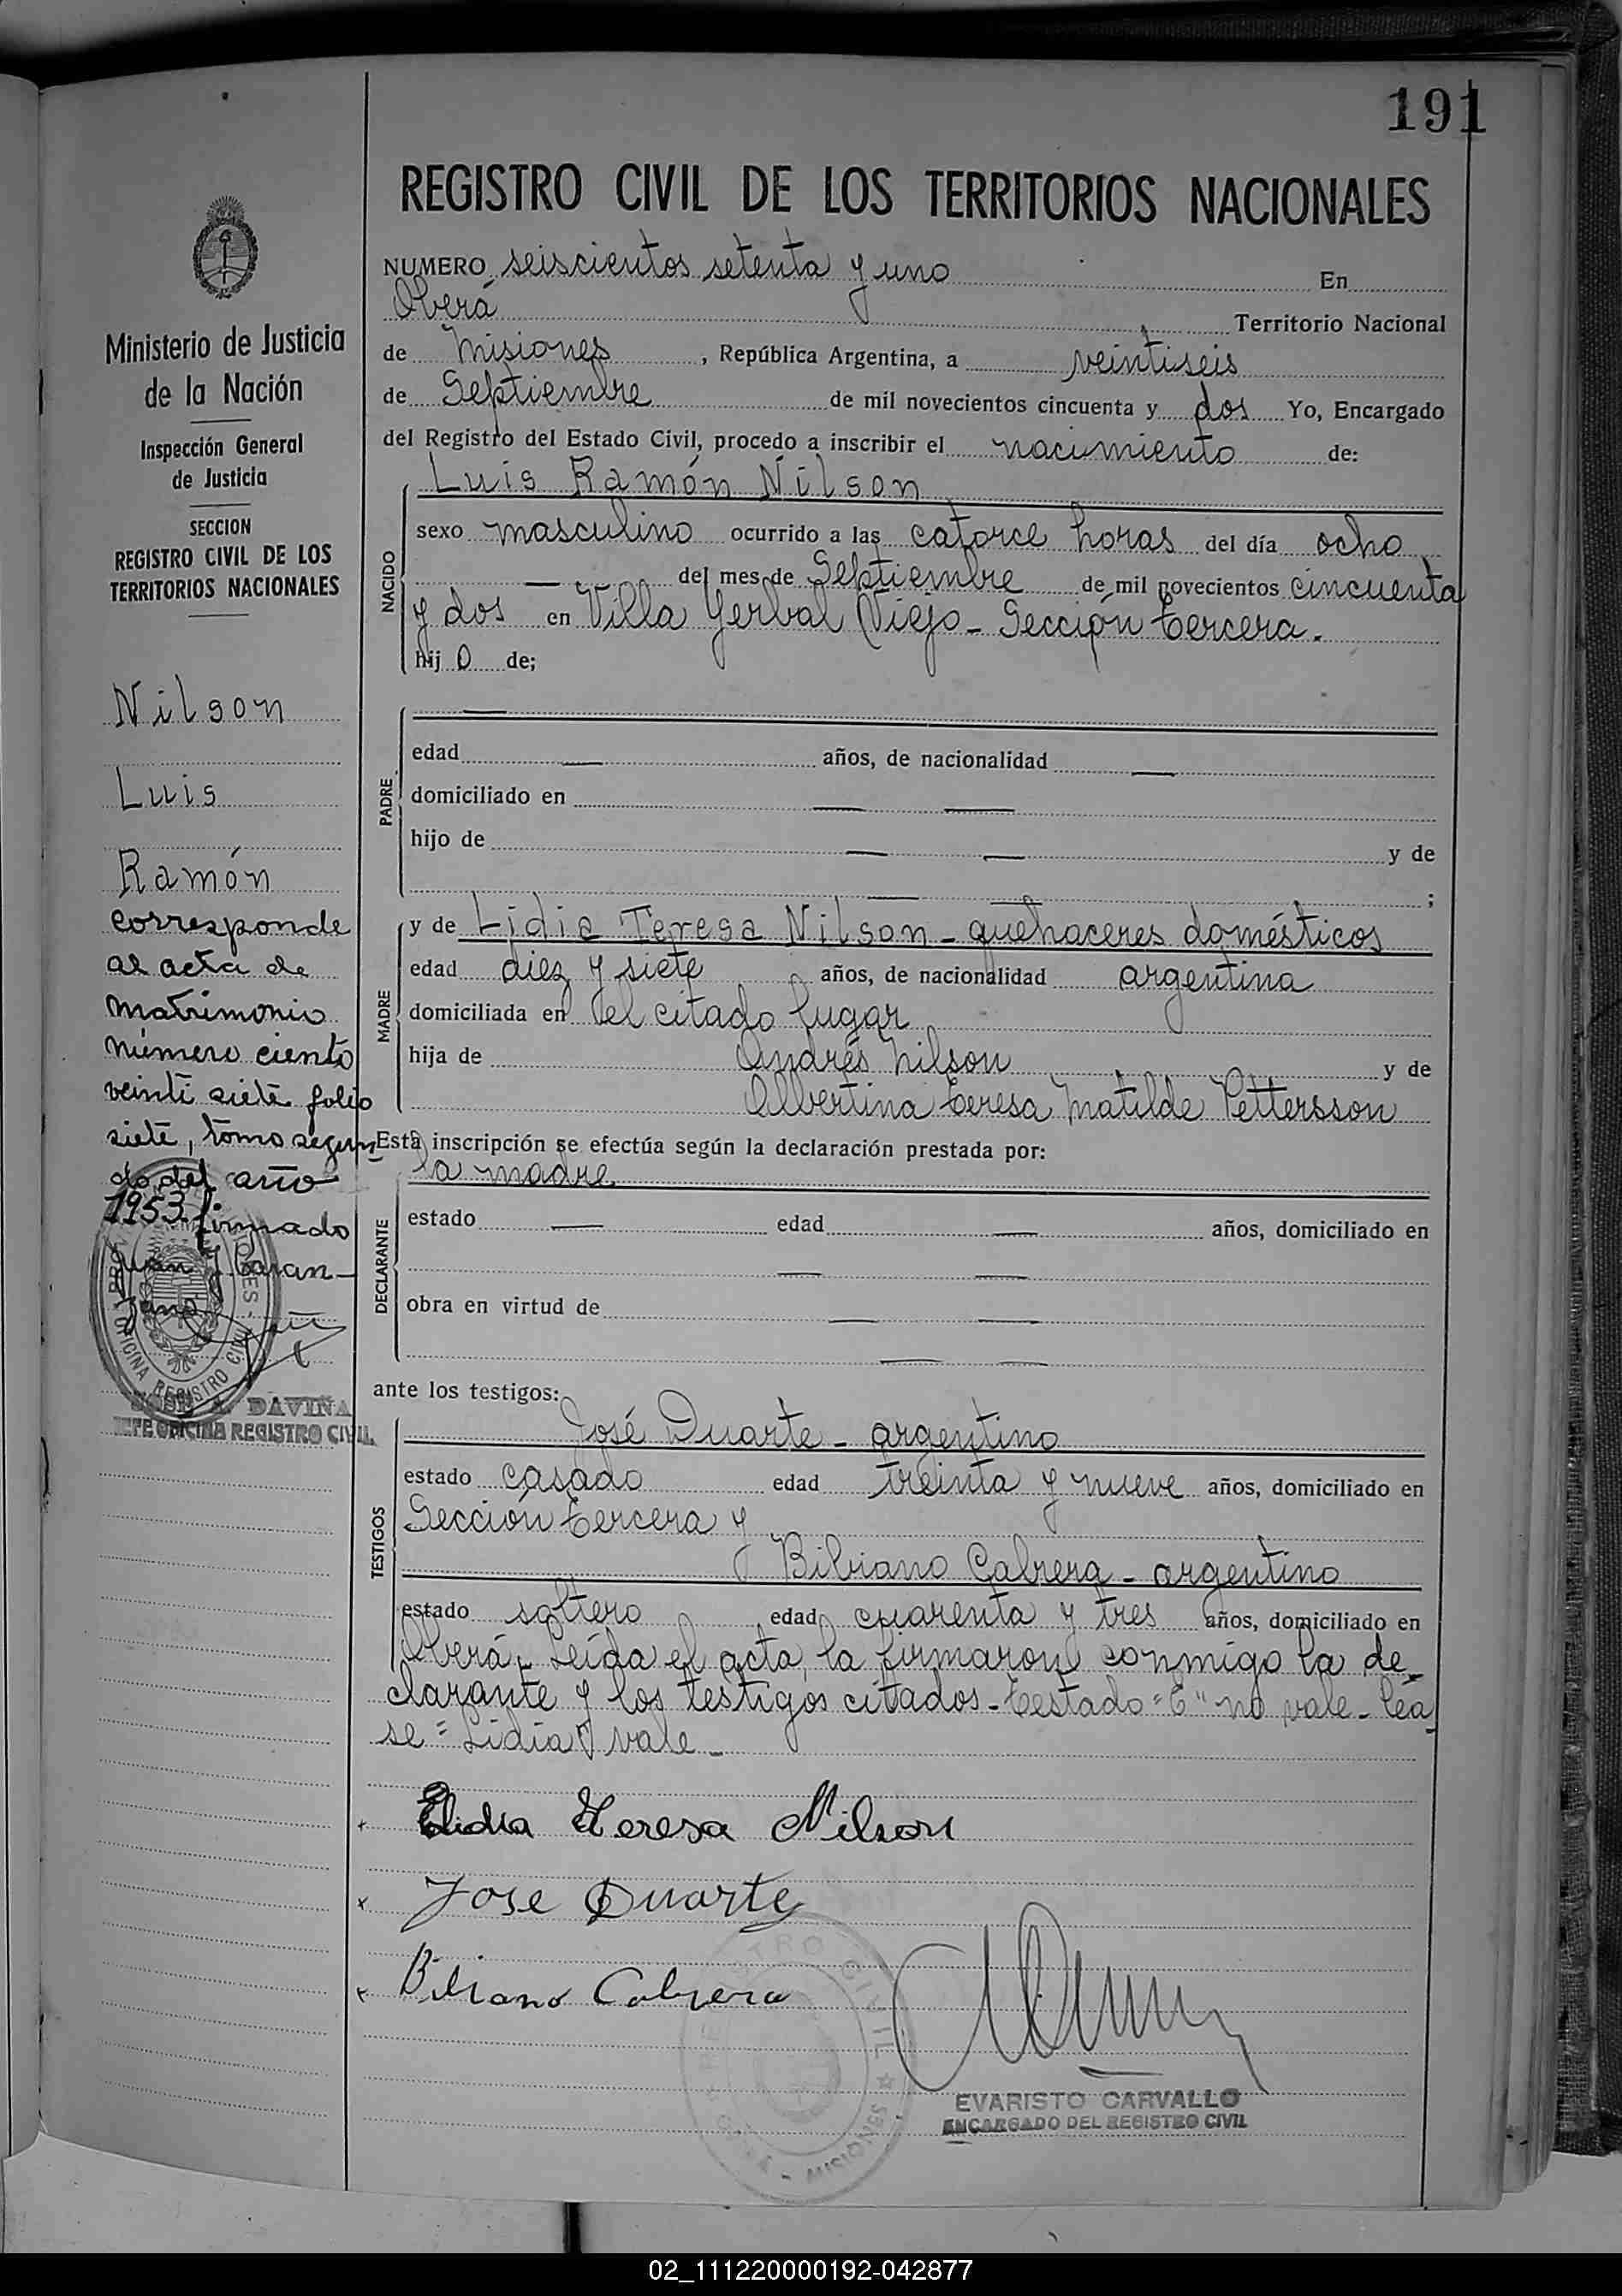 191
REGISTRO CIVIL DE LOS TERRITORIOS NACIONALES
NUMERO seiscientos setenta y uno En
Oberá Territorio Nacional
de Misiones, República Argentina, a veintiseis
de Septiembre de mil novecientos cincuenta y dos Yo, Encargado
del Registro del Estado Civil, procedo a inscribir el nacimiento de:
Luis Ramón Nilson
NACIDO
sexo masculino ocurrido a las catorce horas del día ocho
del mes de Septiembre de mil novecientos cincuenta
y dos en Villa Yerbal Viejo - Sección tercera.
hijo de;
PADRE
edad años, de nacionalidad
domiciliado en
hijo de y de
;
MADRE
y de Lidia Teresa Nilson - quehaceres domésticos
edad diez y siete años, de nacionalidad argentina
domiciliada en el citado lugar
hija de Andrés Nilson y de
Albertina teresa Matilde Pettersson
Esta inscripción se efectúa según la declaración prestada por:
la madre
DECLARANTE
estado edad años, domiciliado en
obra en virtud de
ante los testigos:
José Duarte - argentino
TESTIGOS
estado casado edad treinta y nueve años, domiciliado en
Sección tercera y
Bibiano Cabrera - argentino
estado soltero edad cuarenta y tres años, domiciliado en
Oberá. Leída el acta, la firmaron conmigo la de-
clarante y los testigos citados - testado "E" no vale - léa
se = Lidia vale -
Lidia Teresa Nilson
Jose Duarte
Bibiano Cabrera
EVARISTO CARVALLO
ENCARGADO DEL REGISTRO CIVIL
REGISTRO CIVIL
MISIONES
Ministerio de Justicia
de la Nación
Inspección General
de Justicia
SECCION
REGISTRO CIVIL DE LOS
TERRITORIOS NACIONALES
Nilson
Luis
Ramón
corresponde
al acta de
matrimonio
número ciento
veinti siete folio
siete, tomo segun
do, del año
1953 firmado
Juan J.
OFICINA REGISTRO CIVIL
DAVIÑA
JEFE OFICINA REGISTRO CIVIL
02_111220000192-042877